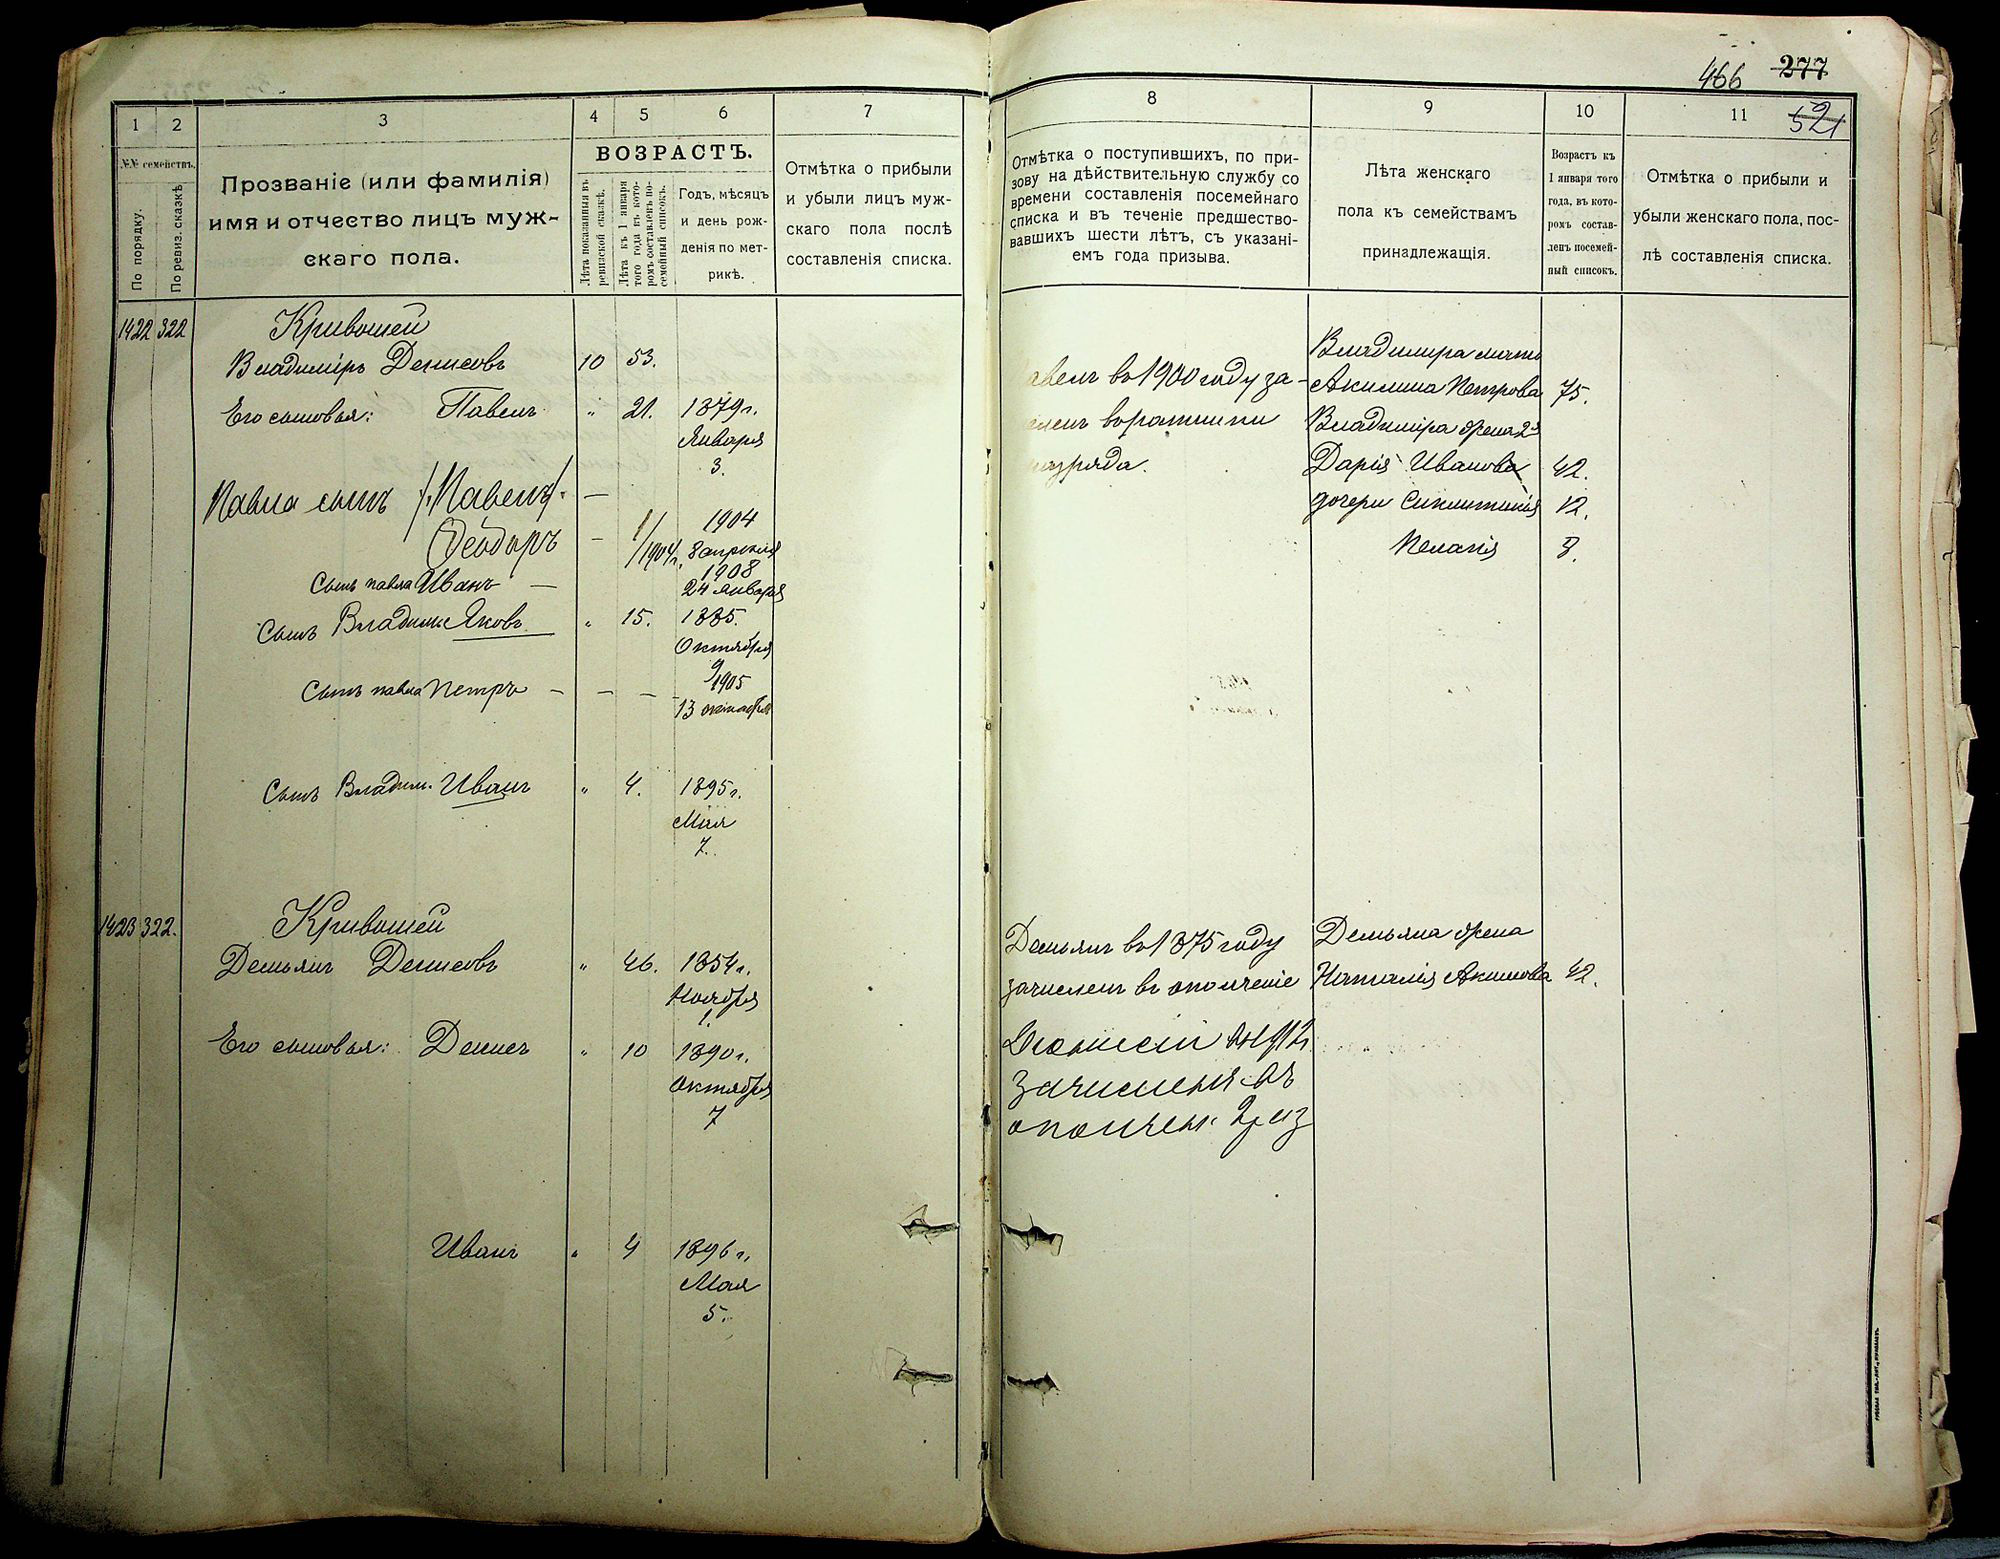 466 277
521
1 2 3 4 5 6 7
№№ семействъ.
По порядку.
По ревиз. сказкѣ
Прозваніе (или фамилія)
имя и отчество лицъ муж-
скаго пола.
ВОЗРАСТЪ.
Лѣта показанныя въ
ревизской сказкѣ.
Лѣта къ 1 января
того года въ кото-
ромъ составленъ по-
семейный списокъ.
Годъ, мѣсяцъ
и день рож-
денія по мет-
рикѣ.
Отмѣтка о прибыли
и убыли лицъ муж-
скаго пола послѣ
составленія списка.
1422 322 Кривошей
Владиміръ Денисовъ 10 53.
Его сыновья: Павелъ „ 21. 1879 г.
Января
3.
Павла сынъ /Павелъ/. —
Ѳеодоръ — 1/1904 г. 1904
8 апреля
Сынъ павла Иванъ — 1908
24 января
Сынъ Владим. Яковъ „ 15. 1885.
Октября
9
Сынъ павла Петръ — — — 1905
13 октября
Сынъ Владим. Иванъ „ 4. 1895 г.
Мая
7.
1423 322. Кривошей
Демьянъ Денисовъ „ 46. 1854 г.
Ноября
1.
Его сыновья: Денисъ „ 10 1890 г.
Октября
7
Иванъ „ 4 1896 г.
Мая
5.
8 9 10 11
Отмѣтка о поступившихъ, по при-
зову на дѣйствительную службу со
времени составленія посемейнаго
списка и въ теченіе предшество-
вавшихъ шести лѣтъ, съ указані-
емъ года призыва.
Лѣта женскаго
пола къ семействамъ
принадлежащія.
Возрастъ къ
1 января того
года, въ кото-
ромъ состав-
ленъ посемей-
ный списокъ.
Отмѣтка о прибыли и
убыли женскаго пола, пос-
лѣ составленія списка.
авелъ въ 1900 году за-
сленъ въ ратники
разряда.
Владимира мать
Акилина Петрова 75.
Владиміра жена 2я
Дарія Иванова 42.
дочери Синклитикія 12.
Пелагія 8.
Демьянъ въ 1875 году
зачисленъ въ ополченіе
Демьяна жена
Наталія Акимова 42.
зачисленъ въ
ополчен. 2 раз